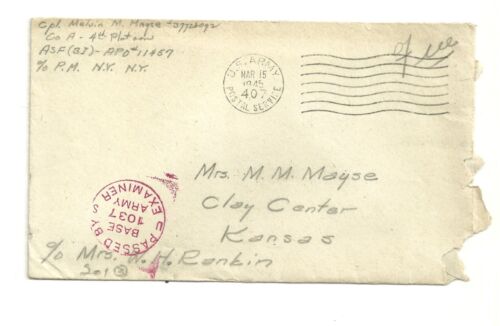 Cpl. Melvin M. Mayse
Co A - 4th Platoon
ASF(BI) - APO #11467
℅ P.M. N.Y. N.Y.
U.S. ARMY
MAR 15
1945
407
POSTAL SERVICE
Mrs. M. M. Mayse
Clay Center
Kansas
℅ Mrs. W. H. Rankin
PASSED BY
BASE
1037
ARMY
EXAMINER